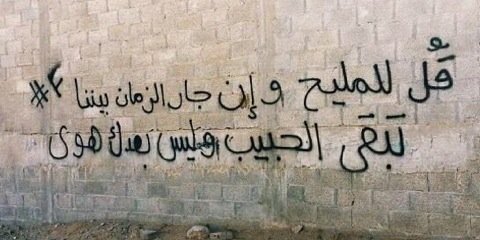 قُل للمليح وإن جار الزمان بيننا #٢
تَبقى الحبيب وليس بعدك هوى